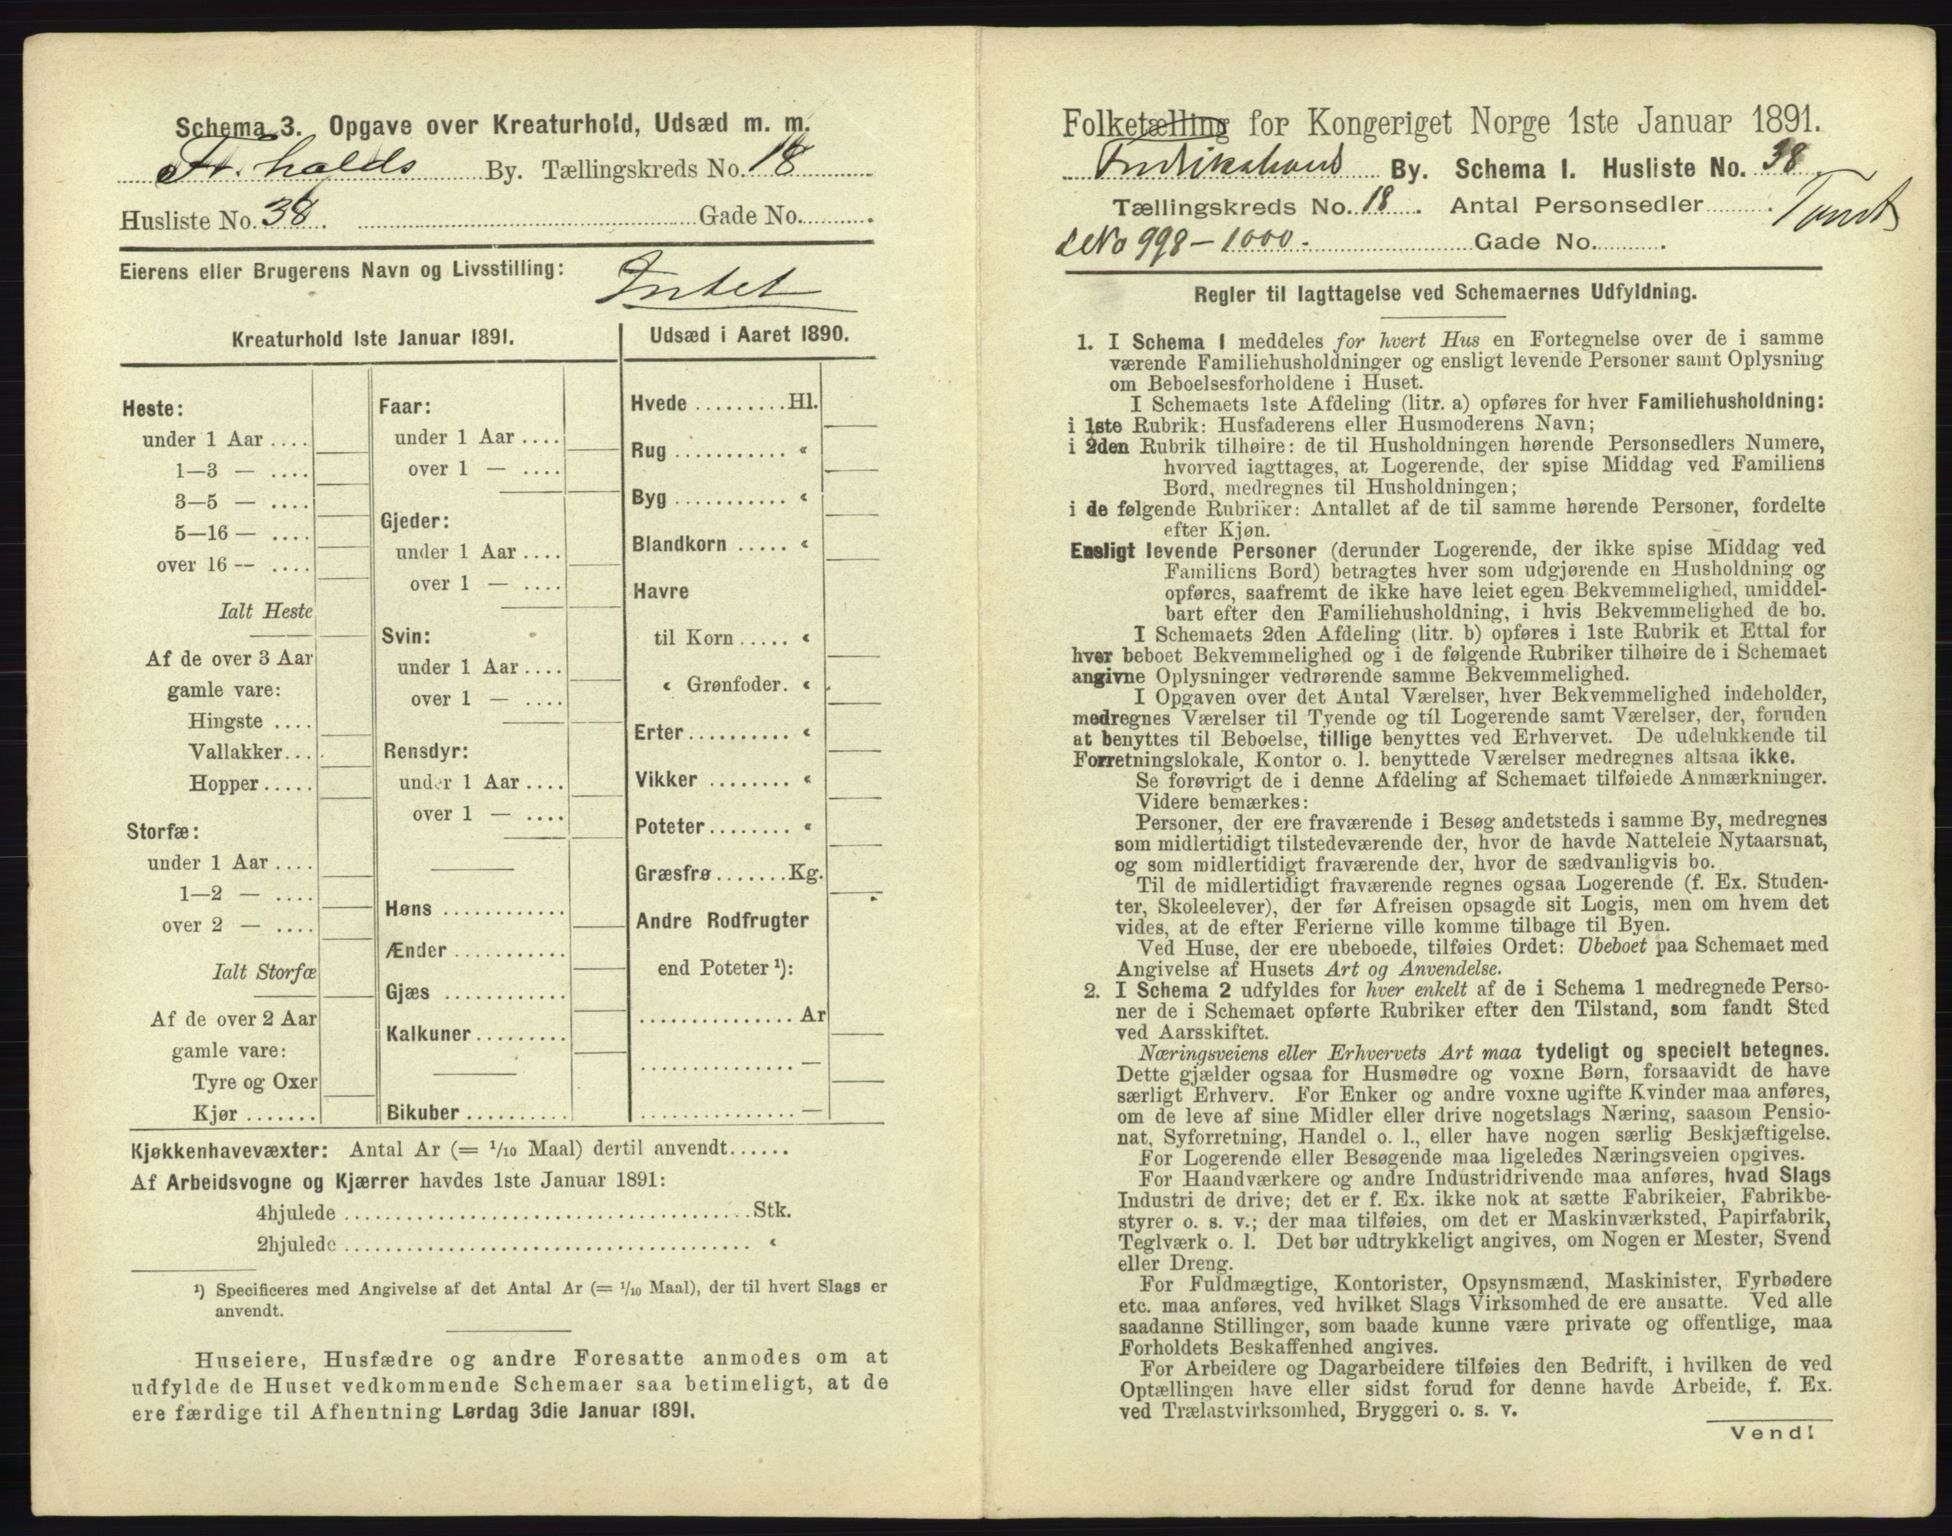 Schema 3. Opgave over Kreaturhold, Udsæd m. m.
Fr.halds By. Tællingskreds No. 18
Husliste No. 38. Gade No. .
Eierens eller Brugerens Navn og Livsstilling:
Intet
Kreaturhold 1ste Januar 1891.
Heste:
under 1 Aar ....
1—3 — ....
3—5 — ....
5—16 — ....
over 16 — ....
Ialt Heste
Af de over 3 Aar
gamle vare:
Hingste ....
Vallakker...
Hopper.....
Storfæ:
under 1 Aar ....
1—2 — ....
over 2 — ....
Ialt Storfæ
Af de over 2 Aar
gamle vare:
Tyre og Oxer
Kjør .......
Faar:
under 1 Aar ....
over 1 — ....
Gjeder:
under 1 Aar ....
over 1 — ....
Svin:
under 1 Aar ....
over 1 — ....
Rensdyr:
under 1 Aar ....
over 1 — ....
Høns ............
Ænder ...........
Gjæs ............
Kalkuner.........
Bikuber ..........
Udsæd i Aaret 1890.
Hvede .........Hl.
Rug ........... «
Byg ........... «
Blandkorn ..... «
Havre
til Korn ..... «
« Grønfoder. «
Erter.......... «
Vikker ........ «
Poteter........ «
Græsfrø.......Kg.
Andre Rodfrugter
end Poteter ¹):
...............Ar
............... —
............... —
Kjøkkenhavevæxter: Antal Ar (= 1/10 Maal) dertil anvendt......
Af Arbeidsvogne og Kjærrer havdes 1ste Januar 1891:
4hjulede ........................................Stk.
2hjulede ........................................ «
¹) Specificeres med Angivelse af det Antal Ar (= 1/10 Maal), der til hvert Slags er
anvendt.
Huseiere, Husfædre og andre Foresatte anmodes om at
udfylde de Huset vedkommende Schemaer saa betimeligt, at de
ere færdige til Afhentning Lørdag 3die Januar 1891.
Folketælling for Kongeriget Norge 1ste Januar 1891.
Fredrikshald By. Schema 1. Husliste No. 38
Tællingskreds No. 18. Antal Personsedler .
Tomt
No 998 – 1000. Gade No. .
Regler til Iagttagelse ved Schemaernes Udfyldning.
1. I Schema 1 meddeles for hvert Hus en Fortegnelse over de i samme
værende Familiehusholdninger og ensligt levende Personer samt Oplysning
om Beboelsesforholdene i Huset.
I Schemaets 1ste Afdeling (litr. a) opføres for hver Familiehusholdning:
i 1ste Rubrik: Husfaderens eller Husmoderens Navn;
i 2den Rubrik tilhøire: de til Husholdningen hørende Personsedlers Numere,
hvorved iagttages, at Logerende, der spise Middag ved Familiens
Bord, medregnes til Husholdningen;
i de følgende Rubriker: Antallet af de til samme hørende Personer, fordelte
efter Kjøn.
Ensligt levende Personer (derunder Logerende, der ikke spise Middag ved
Familiens Bord) betragtes hver som udgjørende en Husholdning og
opføres, saafremt de ikke have leiet egen Bekvemmelighed, umiddel-
bart efter den Familiehusholdning, i hvis Bekvemmelighed de bo.
I Schemaets 2den Afdeling (litr. b) opføres i 1ste Rubrik et Ettal for
hver beboet Bekvemmelighed og i de følgende Rubriker tilhøire de i Schemaet
angivne Oplysninger vedrørende samme Bekvemmelighed.
I Opgaven over det Antal Værelser, hver Bekvemmelighed indeholder,
medregnes Værelser til Tyende og til Logerende samt Værelser, der, foruden
at benyttes til Beboelse, tillige benyttes ved Erhvervet. De udelukkende til
Forretningslokale, Kontor o. l. benyttede Værelser medregnes altsaa ikke.
Se forøvrigt de i denne Afdeling af Schemaet tilføiede Anmærkninger.
Videre bemærkes:
Personer, der ere fraværende i Besøg andetsteds i samme By, medregnes
som midlertidigt tilstedeværende der, hvor de havde Natteleie Nytaarsnat,
og som midlertidigt fraværende der, hvor de sædvanligvis bo.
Til de midlertidigt fraværende regnes ogsaa Logerende (f. Ex. Studen-
ter, Skoleelever), der før Afreisen opsagde sit Logis, men om hvem det
vides, at de efter Ferierne ville komme tilbage til Byen.
Ved Huse, der ere ubeboede, tilføies Ordet: Ubeboet paa Schemaet med
Angivelse af Husets Art og Anvendelse.
2. I Schema 2 udfyldes for hver enkelt af de i Schema 1 medregnede Perso-
ner de i Schemaet opførte Rubriker efter den Tilstand, som fandt Sted
ved Aarsskiftet.
Næringsveiens eller Erhvervets Art maa tydeligt og specielt betegnes.
Dette gjælder ogsaa for Husmødre og voxne Børn, forsaavidt de have
særligt Erhverv. For Enker og andre voxne ugifte Kvinder maa anføres,
om de leve af sine Midler eller drive nogetslags Næring, saasom Pensio-
nat, Syforretning, Handel o. l., eller have nogen særlig Beskjæftigelse.
For Logerende eller Besøgende maa ligeledes Næringsveien opgives.
For Haandværkere og andre Industridrivende maa anføres, hvad Slags
Industri de drive; det er f. Ex. ikke nok at sætte Fabrikeier, Fabrikbe-
styrer o. s. v.; der maa tilføies, om det er Maskinværksted, Papirfabrik,
Teglværk o. l. Det bør udtrykkeligt angives, om Nogen er Mester, Svend
eller Dreng.
For Fuldmægtige, Kontorister, Opsynsmænd, Maskinister, Fyrbødere
etc. maa anføres, ved hvilket Slags Virksomhed de ere ansatte. Ved alle
saadanne Stillinger, som baade kunne være private og offentlige, maa
Forholdets Beskaffenhed angives.
For Arbeidere og Dagarbeidere tilføies den Bedrift, i hvilken de ved
Optællingen have eller sidst forud for denne havde Arbeide, f. Ex.
ved Trælastvirksomhed, Bryggeri o. s. v.
Vend!